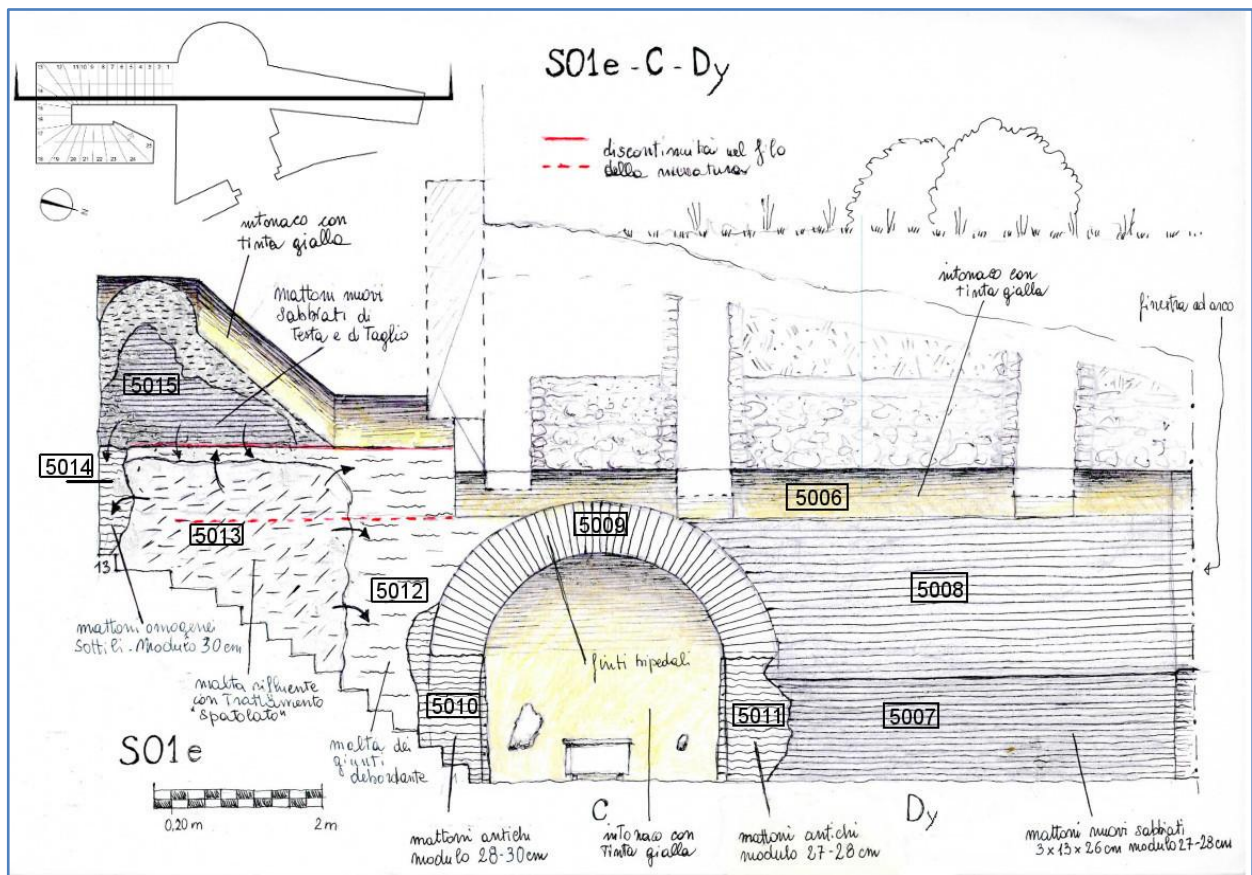 S01e - C - Dy
discontinuità nel filo
della muratura
13 12 11 10 9 8 7 6 5 4 3 2 1
14
15
16
17
18 19 20 21 22 23 24
25
N
intonaco con
tinta gialla
mattoni nuovi
sabbiati di
testa e di taglio
intonaco con
tinta gialla
finestra ad arco
5015
5014
5013
5012
5009
5006
5008
5010
5011
5007
13
mattoni omogenei
sottili - modulo 30 cm
malta rifluente
con trattamento
"spatolato"
malta dei
giunti
debordante
finti bipedali
S01e
0,20 m 2 m
C
Dy
mattoni antichi
modulo 28-30 cm
intonaco con
tinta gialla
mattoni antichi
modulo 27-28 cm
mattoni nuovi sabbiati
3 x 13 x 26 cm modulo 27-28 cm